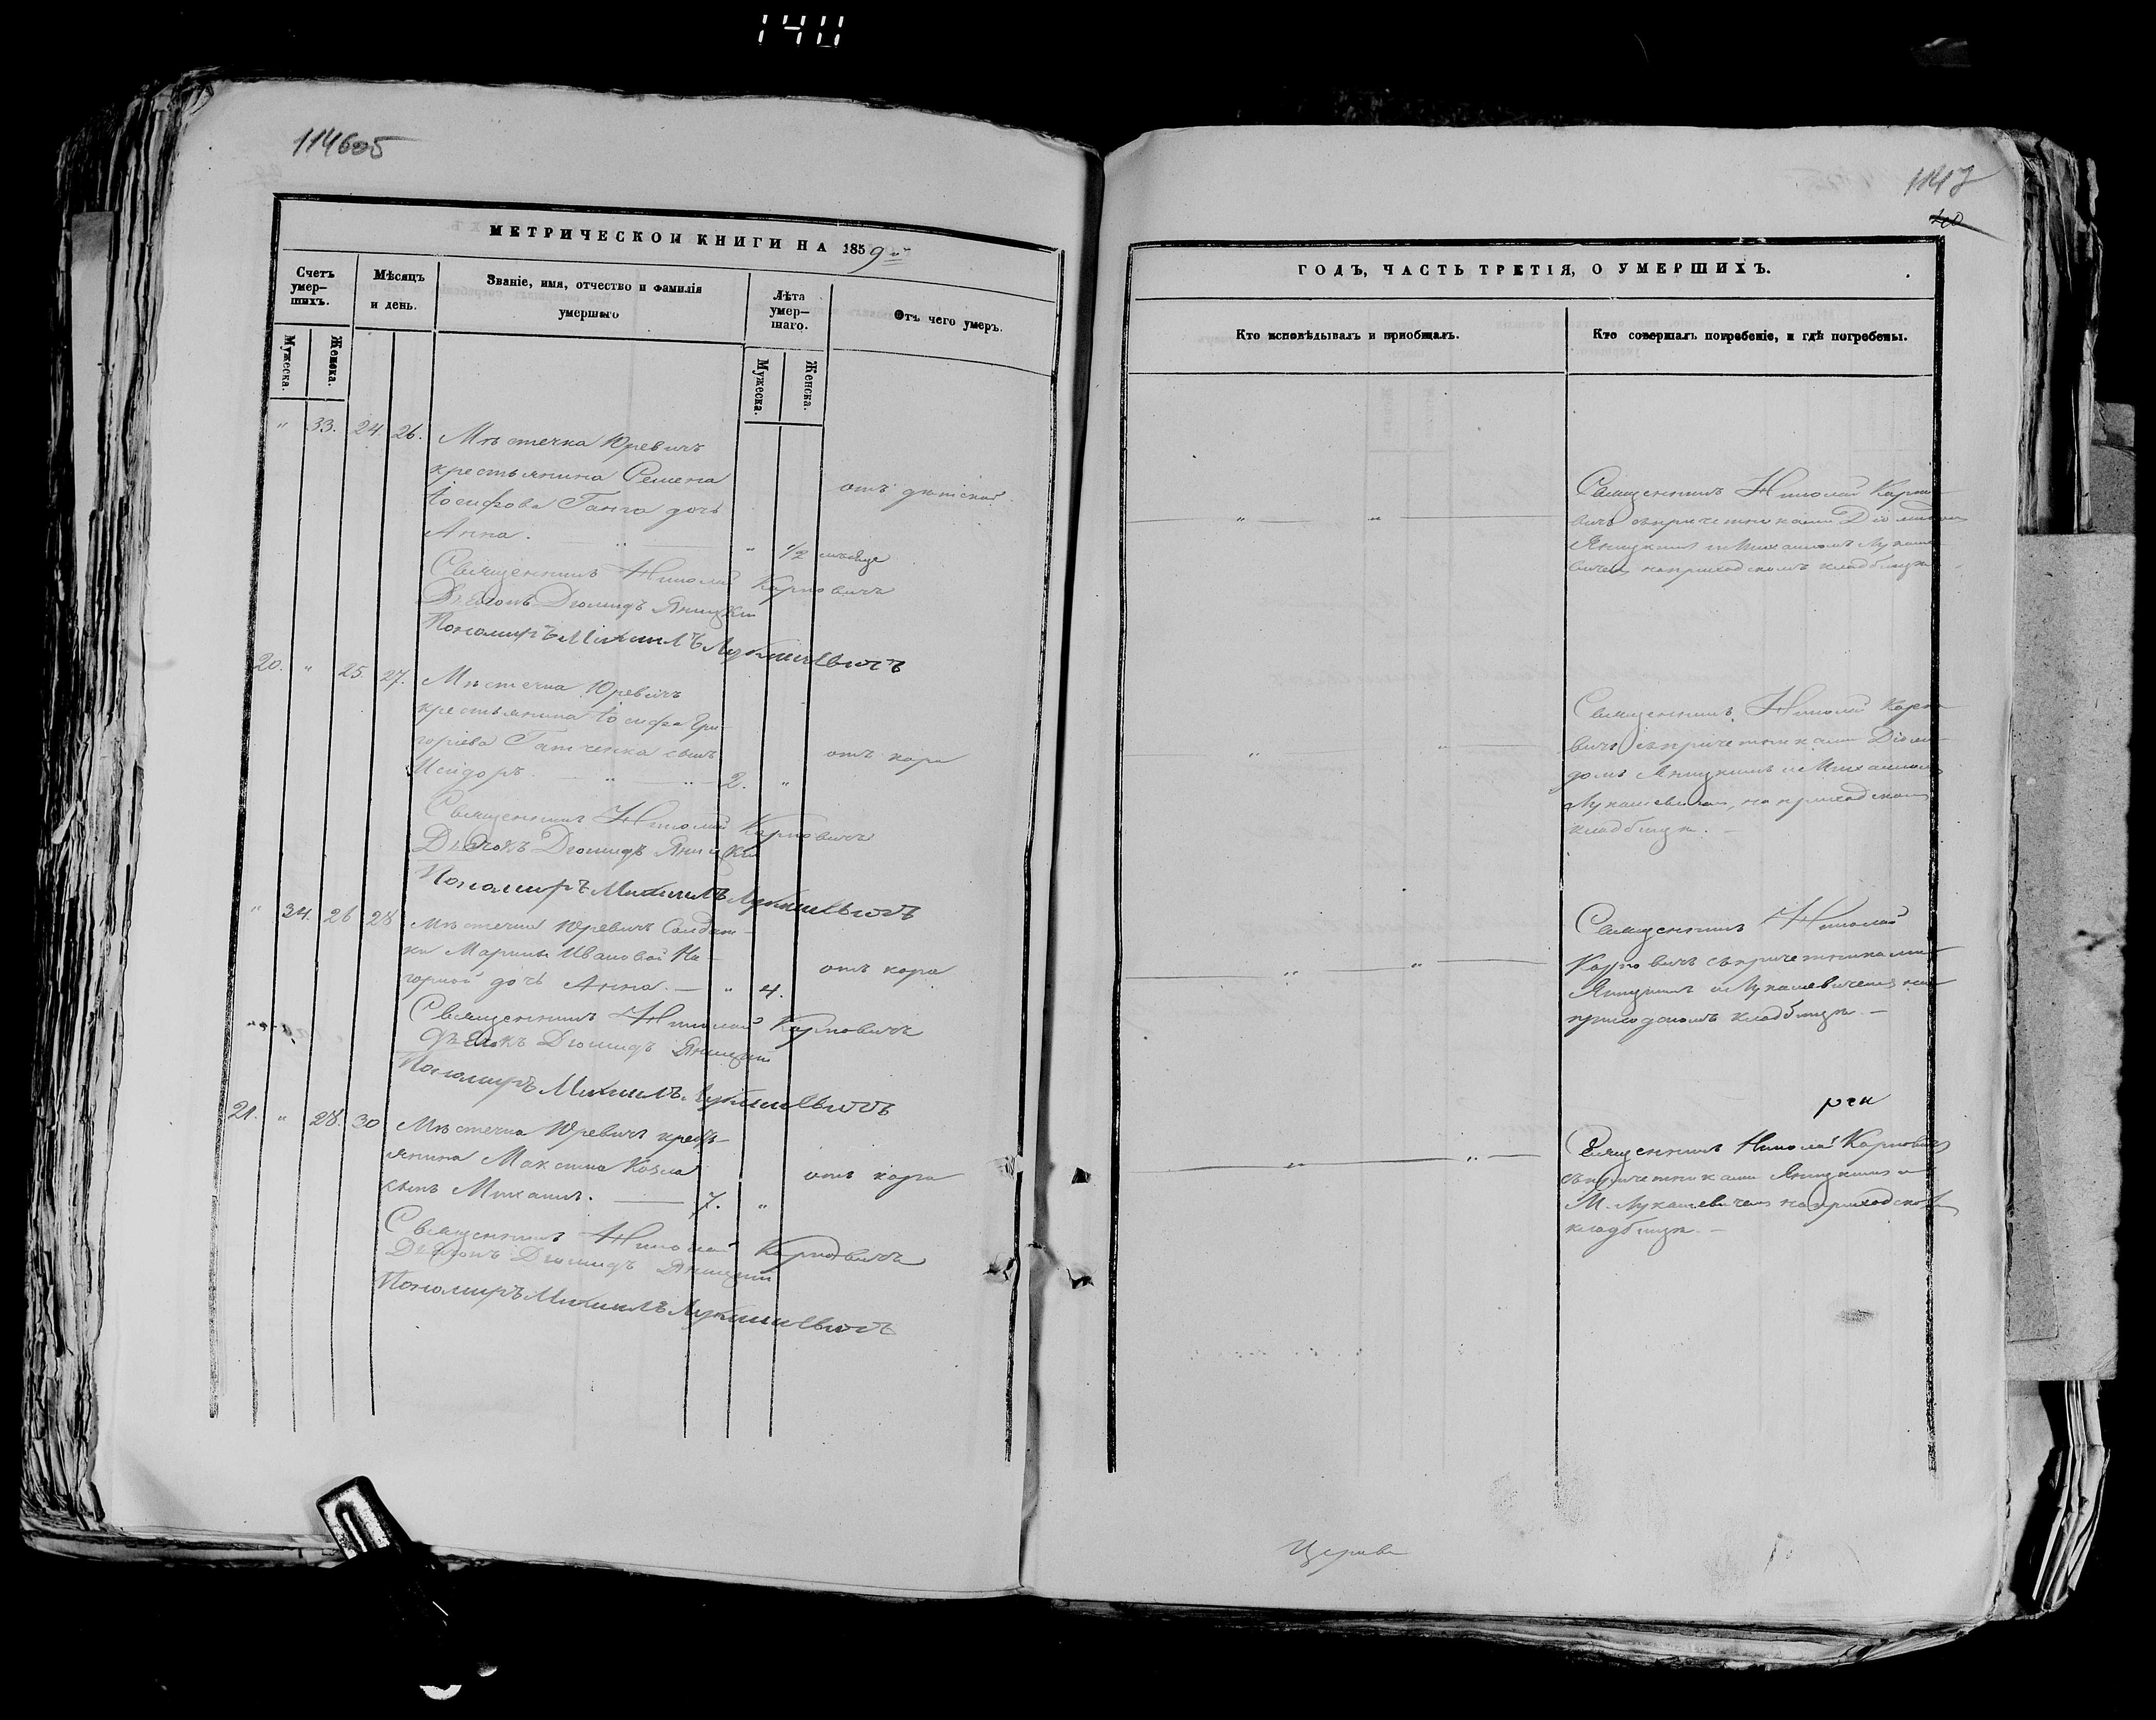 1140
114605
МЕТРИЧЕСКОЙ КНИГИ НА 1859
Счетъ умер-шихъ.
Мѣсяцъ и день.
Званіе, имя, отчество и фамилія умершаго
Лѣта умер-шаго.
Отъ чего умеръ.
Мужеска.
Женска.
Мужеска.
Женска.
" 33. 24. 26. Мѣстечка Юревичъ
крестьянина Семена
Іосифова Ганга дочь
отъ дѣтской
Анна. " 1/2 мѣсяца
Священникъ Николай Карповичъ
Дьячокъ Діомидъ Яницкій
Пономарь Михаилъ Лукашевичъ
20. " 25. 27. Мѣстечка Юревичъ
крестьянина Іосифа Гри-
горіева Гатченка сынъ
отъ кора
Исидоръ. 2. "
Священникъ Николай Карповичъ
Дьячокъ Діомидъ Яницкій
Пономарь Михаилъ Лукашевичъ
" 34. 26 28 Мѣстечка Юревичъ Солдат-
ки Марины Ивановой На-
горной дочь Анна. " 4.
отъ кора
Священникъ Николай Карповичъ
Дьячокъ Діомидъ Яницкій
Пономарь Михаилъ Лукашевичъ
21. " 28. 30 Мѣстечка Юревичъ кресть-
янина Максима Козла
отъ кора
сынъ Михаилъ. 7. "
Священникъ Николай Карповичъ
Дьячокъ Діомидъ Яницкій
Пономарь Михаилъ Лукашевичъ
1147
40
ГОДЪ, ЧАСТЬ ТРЕТІЯ, О УМЕРШИХЪ.
Кто исповѣдывалъ и пріобщалъ.
Кто совершалъ погребеніе, и гдѣ погребены.
Священникъ Николай Карпо-
вичъ съ причетниками Діомидомъ
Яницкимъ и Михаиломъ Лукаше-
вичемъ на приходскомъ кладбищѣ.
Священникъ Николай Карпо-
вичъ съ причетниками Діоми-
домъ Яницкимъ и Михаиломъ
Лукашевичемъ, на приходскомъ
кладбищѣ.
Священникъ Николай
Карповичъ съ причетниками
Яницкимъ и Лукашевичемъ на
приходскомъ кладбищѣ.
Священникъ Николай Карповичъ
съ причетниками Яницкимъ и
М. Лукашевичемъ на приходскомъ
кладбищѣ.
Церкви